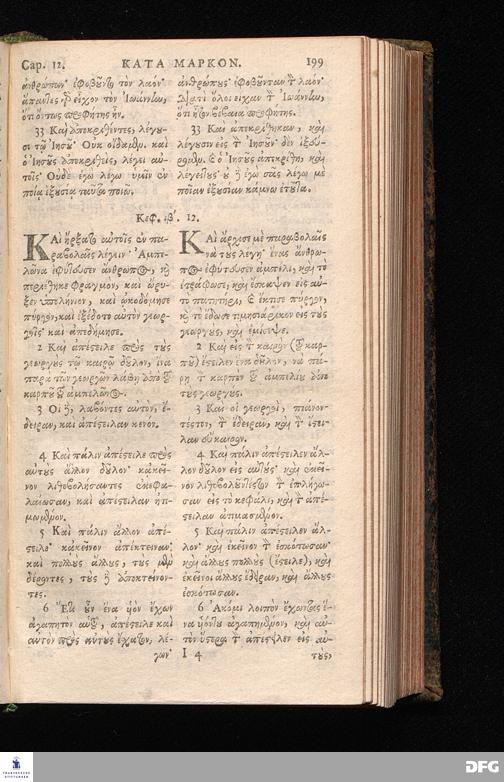 Cap. 12. ΚΑΤΑ ΜΑΡΚΟΝ. 199
ἀνθρώπων· ἐφοβοῦντο τὸν λαόν·
ἅπαντες γὰρ εἶχον τὸν Ἰωάννην,
ὅτι ὄντως προφήτης ἦν.
33 Καὶ ἀποκριθέντες, λέγου-
σι τῷ Ἰησοῦ· Οὐκ οἴδαμεν. καὶ
ὁ Ἰησοῦς ἀποκριθεὶς, λέγει αὐ-
τοῖς· Οὐδὲ ἐγὼ λέγω ὑμῖν ἐν
ποίᾳ ἐξουσίᾳ ταῦτα ποιῶ.
ἀνθρώπους· ἐφοβοῦνταν τὸν λαόν·
Διατὶ ὅλοι εἶχαν τὸν Ἰωάννην,
ὅτι ἦτον βέβαια προφήτης.
33 Καὶ ἀπεκρίθηκαν, καὶ
λέγουσιν εἰς τὸν Ἰησοῦν· δὲν ἐξεύ-
ρομεν. Καὶ ὁ Ἰησοῦς ἀπεκρίθη, καὶ
λέγει τους· οὐδὲ ἐγὼ σᾶς λέγω μὲ
ποῖαν ἐξουσίαν κάμνω ἐτοῦτα.
Κεφ. ιβʹ. 12.
ΚΑὶ ἤρξατο αὐτοῖς ἐν πα-
ραβολαῖς λέγειν· Ἀμπε-
λῶνα ἐφύτευσεν ἄνθρωπος, καὶ
περιέθηκε φραγμὸν, καὶ ὤρυ-
ξεν ὑπολήνιον, καὶ ᾠκοδόμησε
πύργον, καὶ ἐξέδοτο αὐτὸν γεωρ-
γοῖς· καὶ ἀπεδήμησε.
2 Καὶ ἀπέστειλε πρὸς τοὺς
γεωργοὺς τῷ καιρῷ δοῦλον, ἵνα
παρὰ τῶν γεωργῶν λάβῃ ἀπὸ τοῦ
καρποῦ τοῦ ἀμπελῶνος.
3 Οἱ δὲ, λαβόντες αὐτὸν, ἔ-
δειραν, καὶ ἀπέστειλαν κενόν.
4 Καὶ πάλιν ἀπέστειλε πρὸς
αὐτοὺς ἄλλον δοῦλον· κἀκεῖ-
νον λιθοβολήσαντες ἐκεφα-
λαίωσαν, καὶ ἀπέστειλαν ἠτι-
μωμένον.
5 Καὶ πάλιν ἄλλον ἀπέ-
στειλε· κἀκεῖνον ἀπέκτειναν·
καὶ πολλοὺς ἄλλους, τοὺς μὲν
δέροντες, τοὺς δὲ ἀποκτείνον-
τες.
6 Ἔτι οὖν ἕνα υἱὸν ἔχων
ἀγαπητὸν αὑτοῦ, ἀπέστειλε καὶ
αὐτὸν πρὸς αὐτοὺς ἔσχατον, λέ-
γων·
ΚΑὶ ἄρχισε μὲ παραβολαῖς
νὰ τοὺς λέγῃ· ἕνας ἄνθρω-
πος ἐφύτευσε ἀμπέλι, καὶ τὸ
ἐτράφωσε, καὶ ἔσκαψεν εἰς αὐ-
τὸ πατητήρι, καὶ ἔκτισε πύργον,
καὶ τὸ ἔδωσε τιμησιάρικον εἰς τοὺς
γεωργοὺς, καὶ ἐμίσεψε.
2 Καὶ εἰς τὸν καιρὸν (τοῦ καρ-
ποῦ) ἔστειλεν ἕνα δοῦλον, νὰ πά-
ρῃ τὸν καρπὸν τοῦ ἀμπελίου ἀπὸ
τοὺς γεωργούς.
3 Καὶ οἱ γεωργοὶ, πιάνον-
τές τον, τὸν ἔδειραν, καὶ τὸν ἔστει-
λαν εὔκαιρον.
4 Καὶ πάλιν ἀπέστειλεν ἄλ-
λον δοῦλον εἰς αὐτούς· καὶ ἐκεῖ-
νον λιθοβολῶντές τον τὸν ἐπλήγω-
σαν εἰς τὸ κεφάλι, καὶ τὸν ἀπέ-
στειλαν ἀτιμασμένον.
5 Καὶ πάλιν ἀπέστειλεν ἄλ-
λον· καὶ ἐκεῖνον τὸν ἐσκότωσαν·
καὶ ἄλλους πολλοὺς (ἔστειλε), καὶ
ἐκεῖνοι ἄλλους ἔδειραν, καὶ ἄλλους
ἐσκότωσαν.
6 Ἀκόμι λοιπὸν ἔχωντας ἕ-
να υἱόν του ἀγαπημένον, καὶ αὐ-
τὸν ὕστερα τὸν ἀπέστειλεν εἰς αὐ-
I 4 τοὺς,
FRANCKESCHE
STIFTUNGEN
DFG